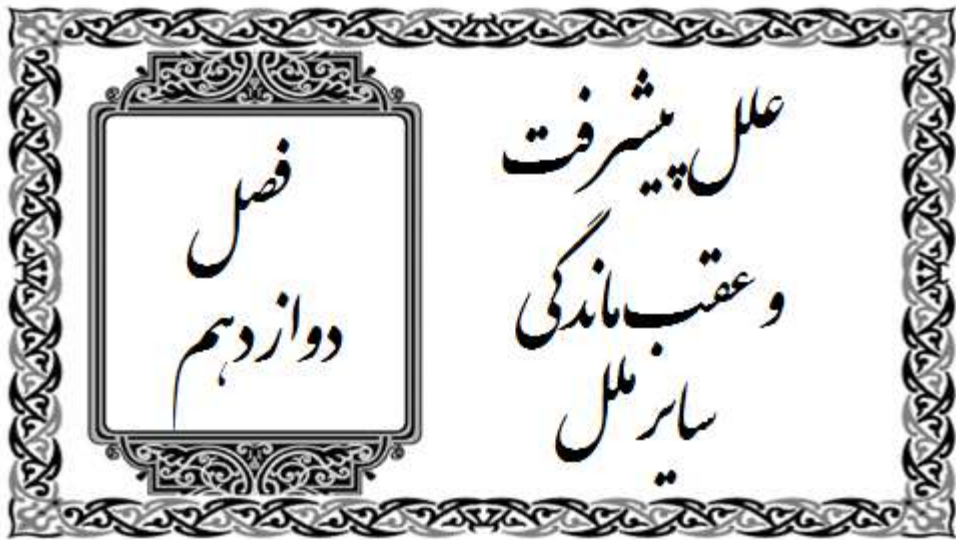 علل پیشرفت
و عقب‌ماندگی
سایر ملل
فصل
دوازدهم